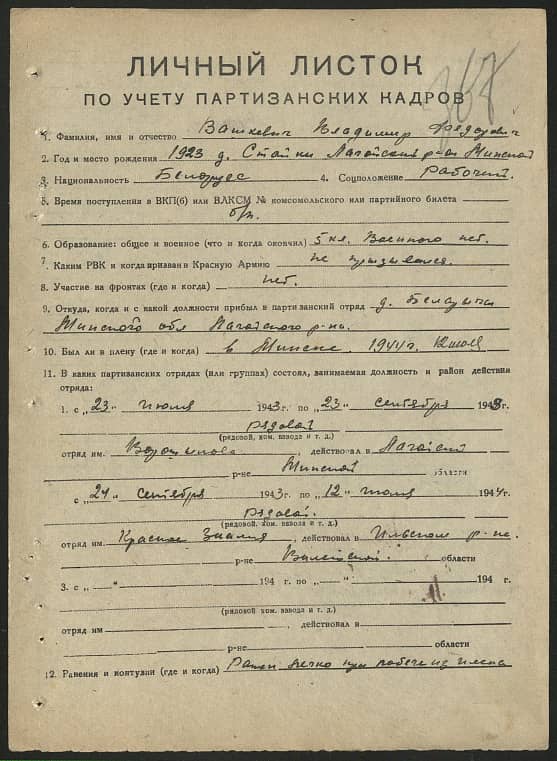 368
ЛИЧНЫЙ ЛИСТОК
ПО УЧЕТУ ПАРТИЗАНСКИХ КАДРОВ
1. Фамилия, имя и отчество Вашкевич Владимир Федорович
2. Год и место рождения 1923 д. Стайки Лагойский р-он Минской
3. Национальность Белорус 4. Соцположение Рабочий.
5. Время поступления в ВКП(б) или ВЛКСМ № комсомольского или партийного билета
б/п.
6. Образование: общее и военное (что и когда окончил) 5 кл. Военного нет.
7. Каким РВК и когда призван в Красную Армию не призывался.
8. Участие на фронтах (где и когда) нет.
9. Откуда, когда и с какой должности прибыл в партизанский отряд д.
Минского обл Лагойского р-на.
10. Был ли в плену (где и когда) в Минске 1944 г. июля
11. В каких партизанских отрядах (или группах) состоял, занимаемая должность и район действия
отряда:
1. с „23" июля 1943 г. по „23" сентября 1943г.
рядовой
(рядовой, ком. взвода и т. д.)
отряд им. Ворошилова, действовал в Лагойский
р-не Минской области
с „24" сентября 1943 г. по „12" июля 1944г.
рядовой.
(рядовой, ком. взвода и т. д.)
отряд им. Красное Знамя, действовал в Ильском р-не.
р-не Вилейской. области
3. с „ — " 194 г. по „ — " 194 г.
(рядовой ком. взвода и т. д.)
отряд им , действовал в
р-не области
12. Ранения и контузии (где и когда) Ранен легко при побеге из плена